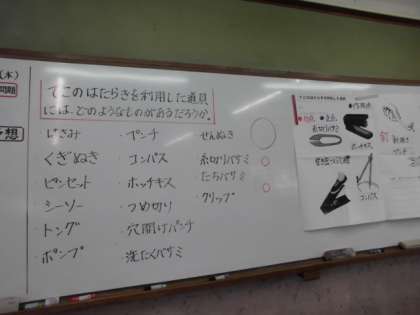 (木)
問題
てこのはたらきを利用した道具
には、どのようなものがあるだろうか。
予想
はさみ
くぎぬき
ピンセット
シーソー
トング
ポンプ
・ペンチ
・コンパス
・ホッチキス
・つめ切り
・穴開けパンチ
・洗たくバサミ
せんぬき
糸切りバサミ
たちバサミ
クリップ
糸切りバサミ
ホッチキス
コンパス